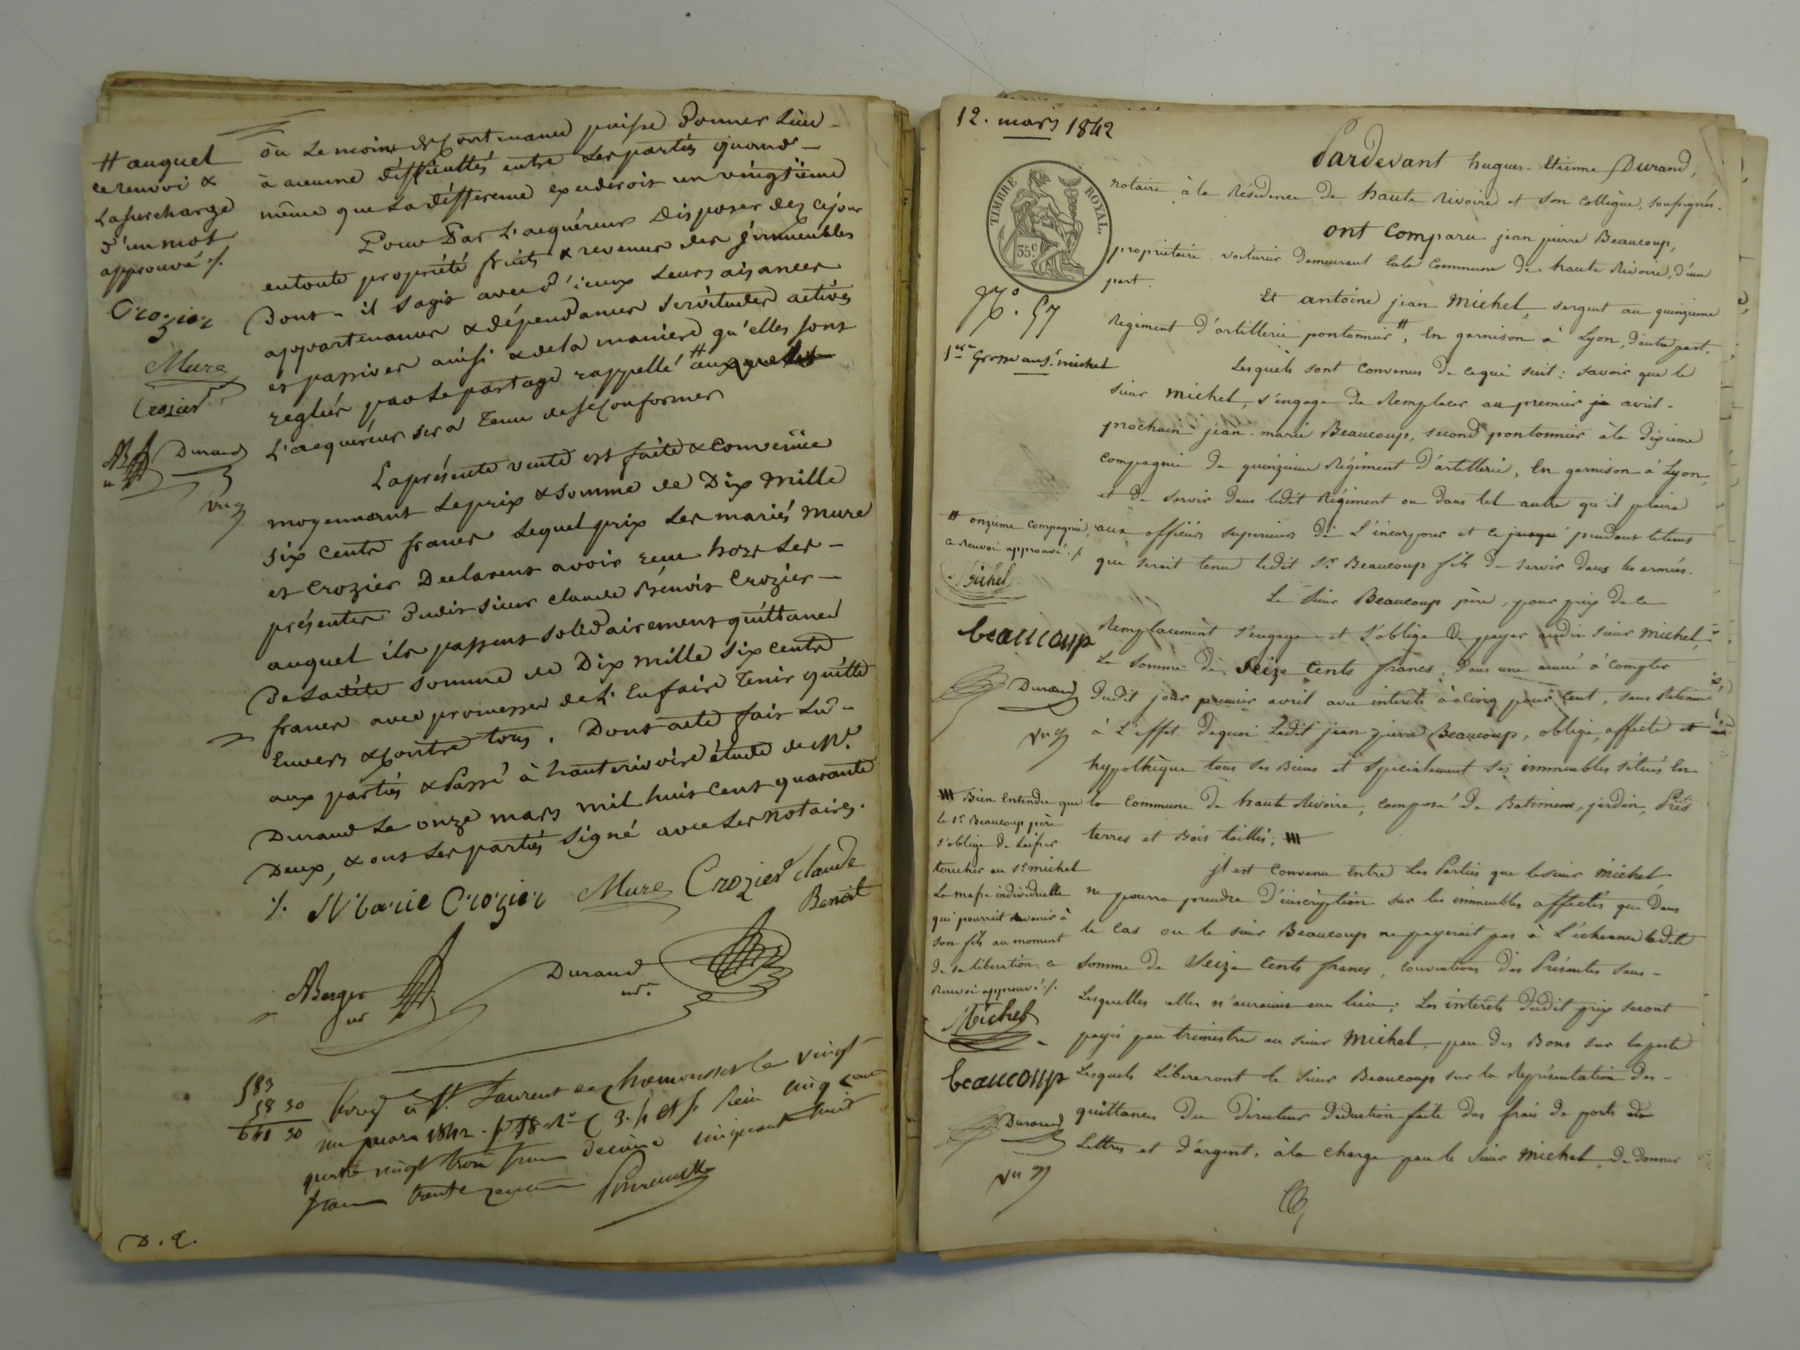 # auquel
ce renvoi &
La surcharge
d'un mot
approuvé ./.
Crozier
Mure
Crozier
AB
Durand
vu
ou Le moins de Contenance puisse Donner Lieu
à aucune difficultés entre Les parties quand
même que La différence excederoit un vingtième
Pour Par L'acquéreur Disposer dez cejour
entoute propriété fruits & revenus des jmmeubles
Dont il s'agit avec d'iceux Leurs aisances
appartenances & dépendances servitudes actives
et passives ainsi & de la manière qu'elles sont
reglées par Le partage rappellé # auxquelles
L'acquéreur sera Tenu de se Conformer
La présente vente est faite & convenüe
moyennant Le prix & somme de Dix mille
six cents francs Lequel prix Les mariés mure
et Crozier Declarent avoir reçu hors Les
présentes dudit sieur claude Benoit Crozier
auquel ils passent solidairement quittance
De Ladite somme de Dix mille six cents
francs avec promesse de L'En faire Tenir quitte
Envers & Contre tous. Dont acte fait Lu
aux parties & Passé à hauterivoire étude de Me.
Durand Le onze mars mil huit cent quarante
Deux, & ont Les parties signé avec Les notaires.
./. Marie Crozier Mure Crozier Claude
Benoit
ABerger
nre
Durand
nre.
583
58 30
641 30
Enreg à St. Laurent de Chamousset le vingt
un mars 1842. Reçu cinq cent
quatre vingt trois francs decime cinquante huit
francs trente centimes
D. Q.
12. mars 1842
TIMBRE ROYAL.
35c.
No. 57
1ere Grosse au Sr. michel
Pardevant hugues-Etienne Durand,
notaire à la Résidence de haute Rivoire et son collègue, soussignés.
ont Comparu jean pierre Beaucoup,
propriétaire voiturier demeurant en la Commune de haute Rivoire, d'une
part.
Et antoine jean Michel, sergent au quinzieme
Régiment d'artillerie pontonnier #, En garnison à Lyon, d'autre part.
Lesquels sont convenus de ce qui suit: savoir que le
sieur Michel, s'engage de Remplacer au premier avril
prochain jean-marie Beaucoup, second pontonnier à la dixieme
Compagnie du quinzieme Régiment d'artillerie, En garnison à Lyon,
et de servir dans ledit Régiment ou dans tel autre qu'il plaira
# onzieme Compagnie,
ce Renvoi approuvé ./.
Michel
aux officiers superieurs de L'incorporer et ce jusqué pendant letems
que serait tenu ledit Sr. Beaucoup fils de servir dans les armées.
Le sieur Beaucoup père, pour prix de ce
beaucoup
Remplacement s'engage et s'oblige de payer audit sieur Michel,
La Somme de Seize Cents francs, Dans une année à Compter
Durand
dudit jour premier avril avec interets à cinq pour cent, sans Retenue
vu
à L'effet de quoi Ledit jean pierre Beaucoup, oblige, affecte et
hypothèque tous ses Biens et Specialement ses immeubles situés En
la Commune de haute Rivoire, composé de Batiments, jardin, Prés
terres et Bois taillis;
Bien Entendu que
le Sr. Beaucoup père
s'oblige de Laisser
toucher au Sr. michel
La masse individuelle
qui pourrait revenir à
son fils au moment
de sa libération. ce
Renvoi approuvé ./.
Michel
beaucoup
Durand
vu
jl est Convenu Entre Les Parties que le sieur Michel
ne pourra prendre d'inscription sur les immeubles affectés que dans
le Cas ou le sieur Beaucoup ne payerait pas à L'échéance ledite
somme de Seize Cents francs, conventions des Présentes sans
Lesquelles elles n'auraient eu lieu; Les interets dudit prix seront
payés par trimestre au sieur Michel, par des Bons sur la poste
Lesquels Libereront le sieur Beaucoup sur la Représentation des
quittances du Directeur déduction faite des frais de ports de
Lettres et d'argent. à la charge par le sieur Michel, de donner